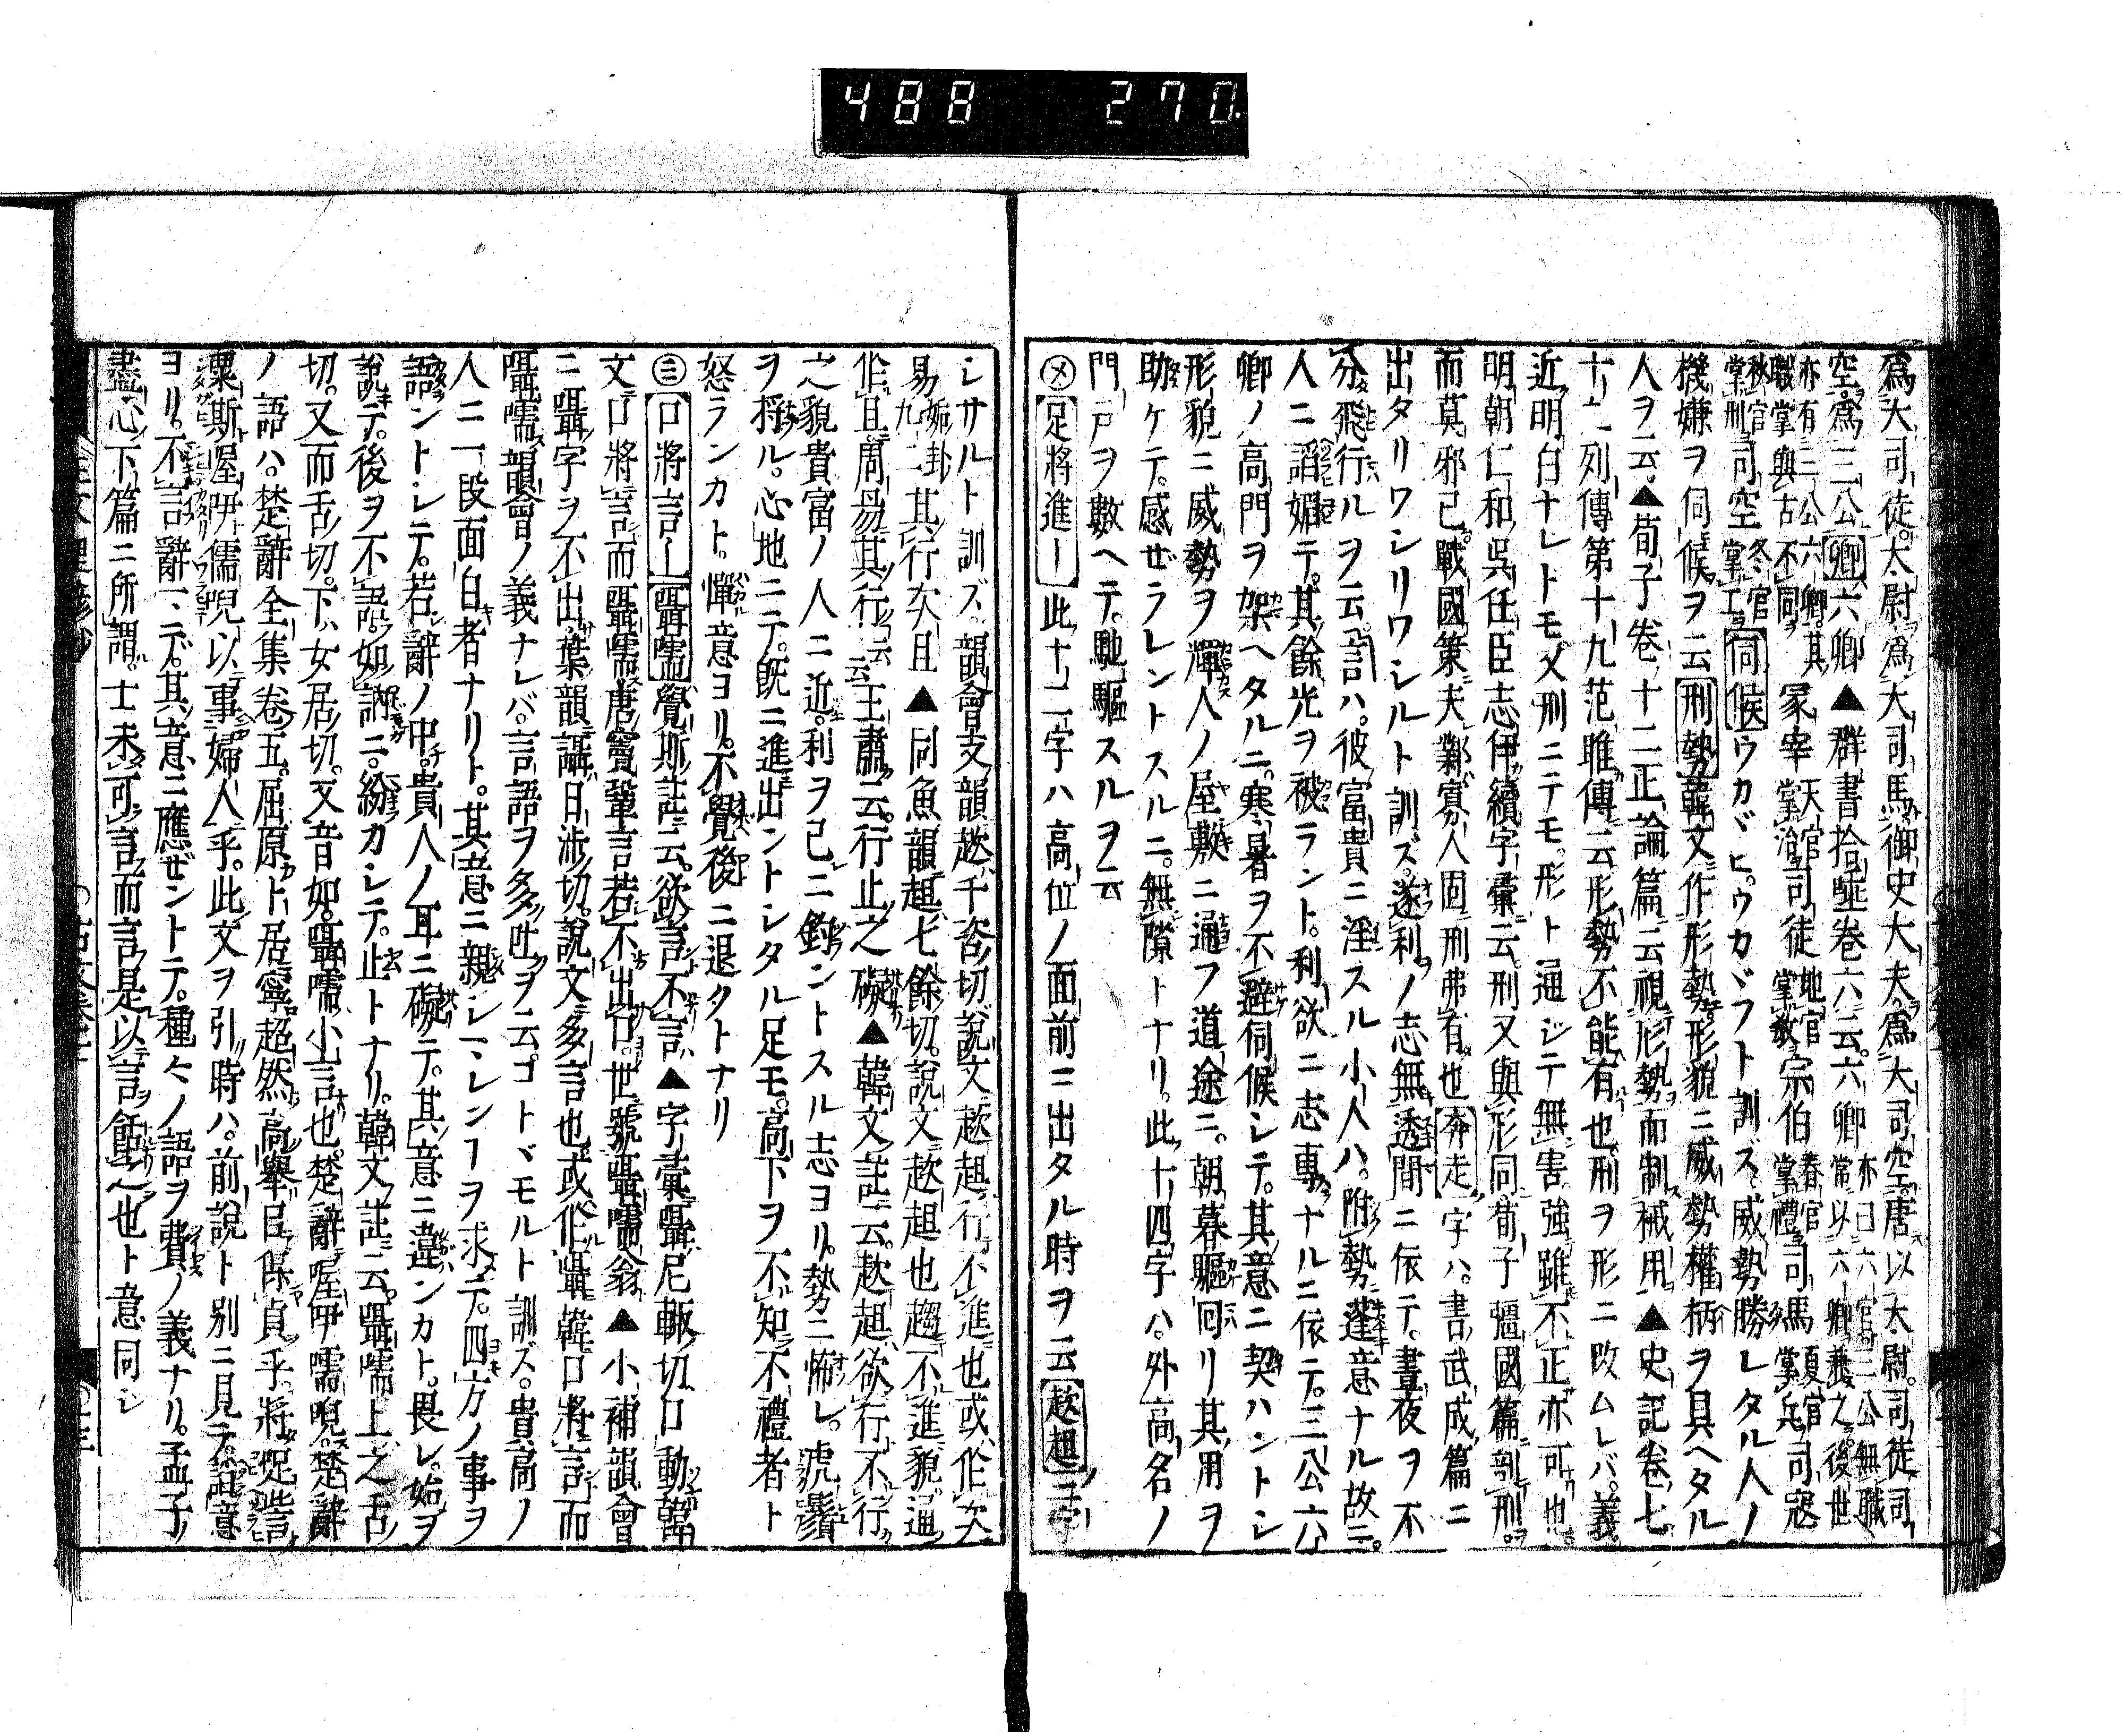 488 270
爲大司徒。太尉爲大司馬。御史大夫爲大司空。唐以大尉。司徒。司
空。爲三公卿六卿▲群書拾唾卷六云。六卿亦曰六官。三公無職
亦有三公六卿其常以六卿兼之。後世
職掌與古不同冢宰天官掌治司徒地官掌敎宗伯春官掌禮司馬夏官掌兵司寇
秋官掌刑司空冬官掌工伺候ウカヾヒ。ウカヾフト訓ズ。威勢勝レタル人ノ
機嫌ヲ伺候ヲ云刑勢韓文作形勢形貌ニ威勢權柄ヲ具ヘタル
人ヲ云。▲荀子卷十二正論篇云視形勢而制械用▲史記卷七
十一列傳第十九范雎傳云形勢不能有也。刑ヲ形ニ改ムレバ。義
近明白ナレトモ又刑ニテモ。形ト通ジテ無害強雖不正亦可也。
明朝仁和吳任臣志伊續字彙云。刑又與形同荀子彊國篇刑。
而莫邪已。戰國策夫鄰寡人固刑弗有也奔走字ハ。書武成篇ニ
出タリワシリワシルト訓ズ。遂利ノ志無透間ニ依テ。晝夜ヲ不
分飛行ルヲ云。言ハ。彼富貴ニ淫スル小人ハ。附勢蓬意ナル故ニ。
人ニ謟媚テ。其餘光ヲ被ラント。利欲ニ志專ナルニ依テ。三公六
卿ノ高門ヲ架ヘタルニ。寒暑ヲ不避伺候シテ。其意ニ契ハントシ
形貌ニ威勢ヲ輝人ノ屋敷ニ通フ道途ニ。朝暮驅回リ其用ヲ
助ケテ。感ゼラレントスルニ。無隙トナリ。此十四字ハ。外高名ノ
門戸ヲ數ヘテ。馳驅スルヲ云
足將進ー此十二字ハ高位ノ面前ニ出タル時ヲ云趑趄
シサルト訓ズ。韻會支韻趑千咨切說文趑趄行不進也或作次
易姤卦九二其行次且▲同魚韻趄七餘切。說文趑趄也趨不進貌通
作且周易其行云云王肅云。行止之礙▲韓文註云。趑趄欲行不行
之貌貴富ノ人ニ近。利ヲ己ニ釣ントスル志ヨリ。勢ニ怖レ。虎鬚
ヲ捋ル。心地ニテ。既ニ進出ントシタル足モ。高下ヲ不知不禮者ト
怒ランカト。憚意ヨリ。不覺後ニ退タトナリ
㊂口將言ー囁嚅覺斯註云。欲言不言▲字彙囁尼輒切口動韓
文口將言而囁嚅唐竇鞏言若不出口。世號囁嚅翁▲小補韻會
ニ囁字ヲ不出葉韻讘日渉切。說文多言也或作囁韓口將言而
囁嚅韻會ノ義ナレバ。言語ヲ多吐ヲ云。コトヾモルト訓ズ。貴高ノ
人ニ一段面白者ナリト。其意ニ親シレンヿヲ求テ。四方ノ事ヲ
語ントシテ。若辭ノ中。貴人ノ耳ニ礙テ。其意ニ違ンカト。畏レ。始ヲ
說テ。後ヲ不語如訥ニ。紛カシテ。止トナリ。韓文註云囁嚅上之舌
切。又而舌切。下女居切。又音如。囁嚅小言也。楚辭喔咿嚅唲楚辭
ノ語ハ。楚辭全集卷五。屈原卜居寧超然高擧以保貞乎。將哫訾
粟斯喔咿儒唲以事婦人乎。此文ヲ引時ハ。前說ト別ニ見テ。諂意
ヨリ。不言辭一ニデ。其意ニ應ゼントテ。種々ノ語ヲ費ノ義ナリ。孟子
盡心下篇ニ所謂。士未可言而言是以言餂之也ト意同シ